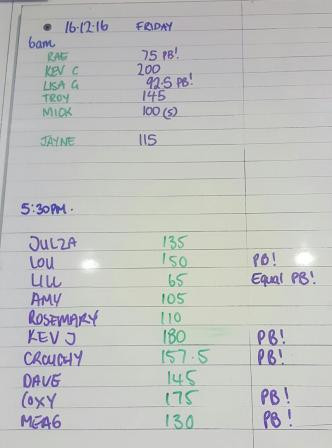 16.12.16 FRIDAY
6am
RAE 75 PB!
KEV C 200
LISA G 92.5 PB!
TROY 145
MICK 100(5)
JAYNE 115
5:30PM.
JULZA 135
LOU 150 PB!
LILL 65 Equal PB!
AMY 105
ROSEMARY 110
KEV J 180 PB!
CROUCHY 157.5 PB!
DAVE 145
COXY 175 PB!
MEAG 130 PB!